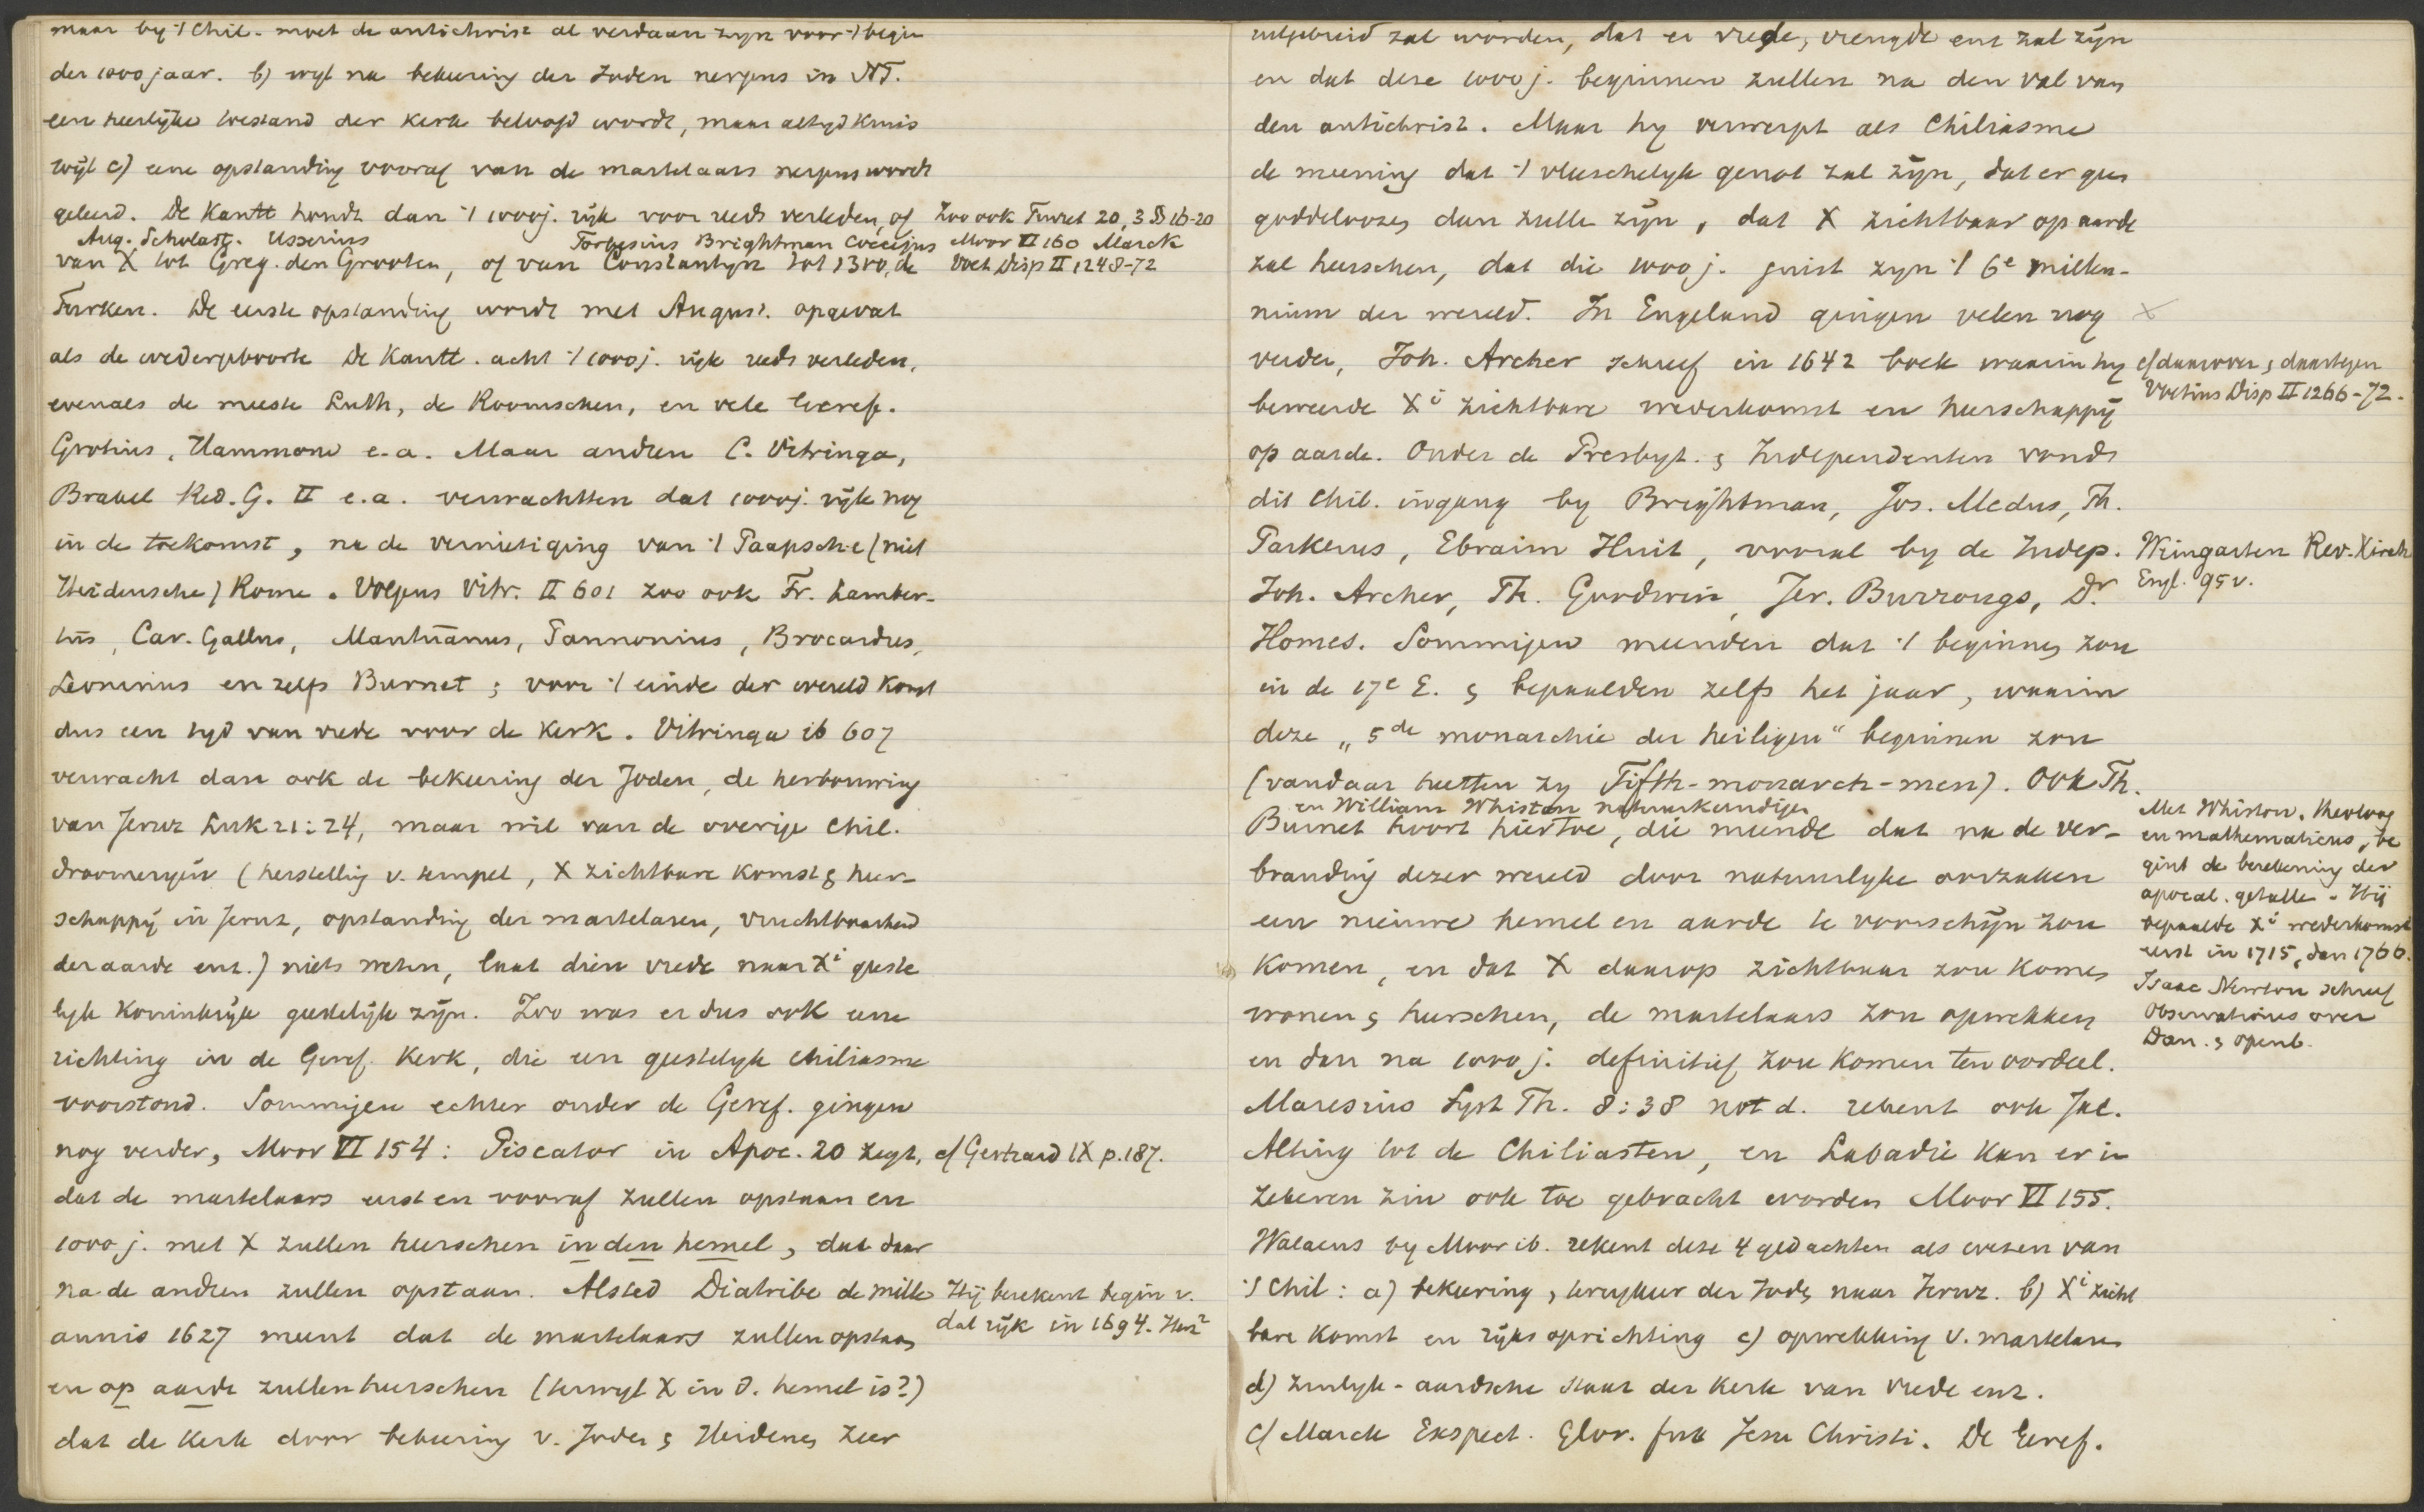 maar by 't Chil. moet de antichrist al verdaan zyn voor 't begin
der 1000 jaar. b) wyl na bekeering der Joden nergens in NT.
een heerlijke toestand der kerk beloofd wordt, maar altyd kruis
wijl c) eene opstanding vooraf van de martelaars nergens wordt
geleerd. De Kantt houdt dan 't 1000j. rijk voor reeds verleden, of
Aug. Scholast. Usserius
Forbesius Brightman Coccejus
van X tot Greg. den Grooten, of van Constantyn tot 1300, de
Zoo ook Turret 20, 3 § 16-20
Moor VI 160 Marck
Voet Disp II 1248-72
Turken. De eerste opstanding wordt met August. opgevat
als de wedergeboorte De Kantt. acht 't 1000j. rijk reeds verleden,
evenals de meeste Luth, de Roomschen, en vele Geref.
Grotius, Hammond e.a. Maar andren C. Vitringa,
Brakel Red. G. II e.a. verwachtten dat 1000j. rijk nog
in de toekomst, na de vernietiging van 't Paapsche (niet
Heidensche) Rome. Volgens Vitr. II 601 zoo ook Fr. Lamber-
tus, Cav. Gallus, Mantuanus, Pannonius, Brocardus,
Leoninus en zelfs Burnet; voor 't einde der wereld komt
dus een tyd van vrede voor de kerk. Vitringa ib 607
verwacht dan ook de bekeering der Joden, de herbouwing
van Jeruz Luk 21:24, maar wil van de overige Chil.
droomerijen (herstelling v. tempel, X zichtbare komst & heer-
schappij in Jeruz, opstanding der martelaren, vruchtbaarheid
der aarde enz.) niets weten, laat dien vrede naar Xi geeste
lyk Koninkrijk geestelijk zijn. Zoo was er dus ook eene
richting in de Geref. Kerk, die een geestelyk chiliasme
voorstond. Sommigen echter onder de Geref. gingen
nog verder, Moor VI 154: Piscator in Apoc. 20 zegt,
cf Gerhard IX p.187.
dat de martelaars eerst en vooraf zullen opstaan en
1000 j. met X zullen heerschen in den hemel, dat daar
na de andren zullen opstaan. Alsted Diatribe de mille
Hij berekent begin v.
dat rijk in 1694.
annis 1627 meent dat de martelaars zullen opstaan
en op aarde zullen heerschen (terwyl X in d. hemel is?)
dat de kerk door bekeering v. Joden & Heidenen zeer
uitgebreid zal worden, dat er vrede, vreugde enz zal zijn
en dat deze 1000 j. beginnen zullen na den val van
den antichrist. Maar hy verwerpt als Chiliasme
de meening dat 't vleeschelyk genot zal zijn, dat er geen
goddeloozen dan zulle zijn, dat X zichtbaar op aarde
zal heerschen, dat die 1000 j. juist zyn 't 6e millen-
nium der wereld. In Engeland gingen velen nog
X
verder, Joh. Archer schreef in 1642 boek waarin hy
cf daarover & daartegen
Voetius Disp II 1266-72.
beweerde Xi zichtbare wederkomst en heerschappij
op aarde. Onder de Presbyt. & Independenten vondt
dit Chil. ingang by Brightman, Jos. Medus, Th.
Parkerus, Ebraim Huit, vooral by de Indep.
Weingarten Rev. Kirch
Engl. 95 v.
Joh. Archer, Th. Goodwin, Jer. Burrougs, Dr.
Homes. Sommigen meenden dat 't beginnen zou
in de 17e E. & bepaalden zelfs het jaar, waarin
deze „5de monarchie der heiligen“ beginnen zou
(vandaar heetten zy Fifth-monarch-men). Ook Th.
en William Whiston natuurkundigen
Burnet hoort hiertoe, die meende dat na de ver-
branding dezer wereld door natuurlyke oorzaken
een nieuwe hemel en aarde te voorschijn zou
komen, en dat X daarop zichtbaar zou komen
wonen & heerschen, de martelaars zou opwekken
en dan na 1000 j. definitief zou komen ten oordeel.
Met Whiston, theoloog
en mathematicus, be
gint de berekening der
apocal. getallen. Hij
bepaalde Xi wederkomst
eerst in 1715, dan 1766.
Isaac Newton schreef
Observations over
Dan. & openb.
Maresius Syst Th. 8:38 not d. rekent ook Jac.
Alting tot de Chiliasten, en Labadie kan er in
zekeren zin ook toe gebracht worden Moor VI 155.
Walaeus by Moor ib. rekent deze 4 gedachten als wezen van
't Chil: a) bekeering, terugkeer der Joden naar Jeruz. b) Xi zicht
bare komst en rijks oprichting c) opwekking v. martelaren
d) zinlyk-aardsche staat der kerk van vrede enz.
Cf Marck Exspect. Glor. fut Jesu Christi. De Geref.